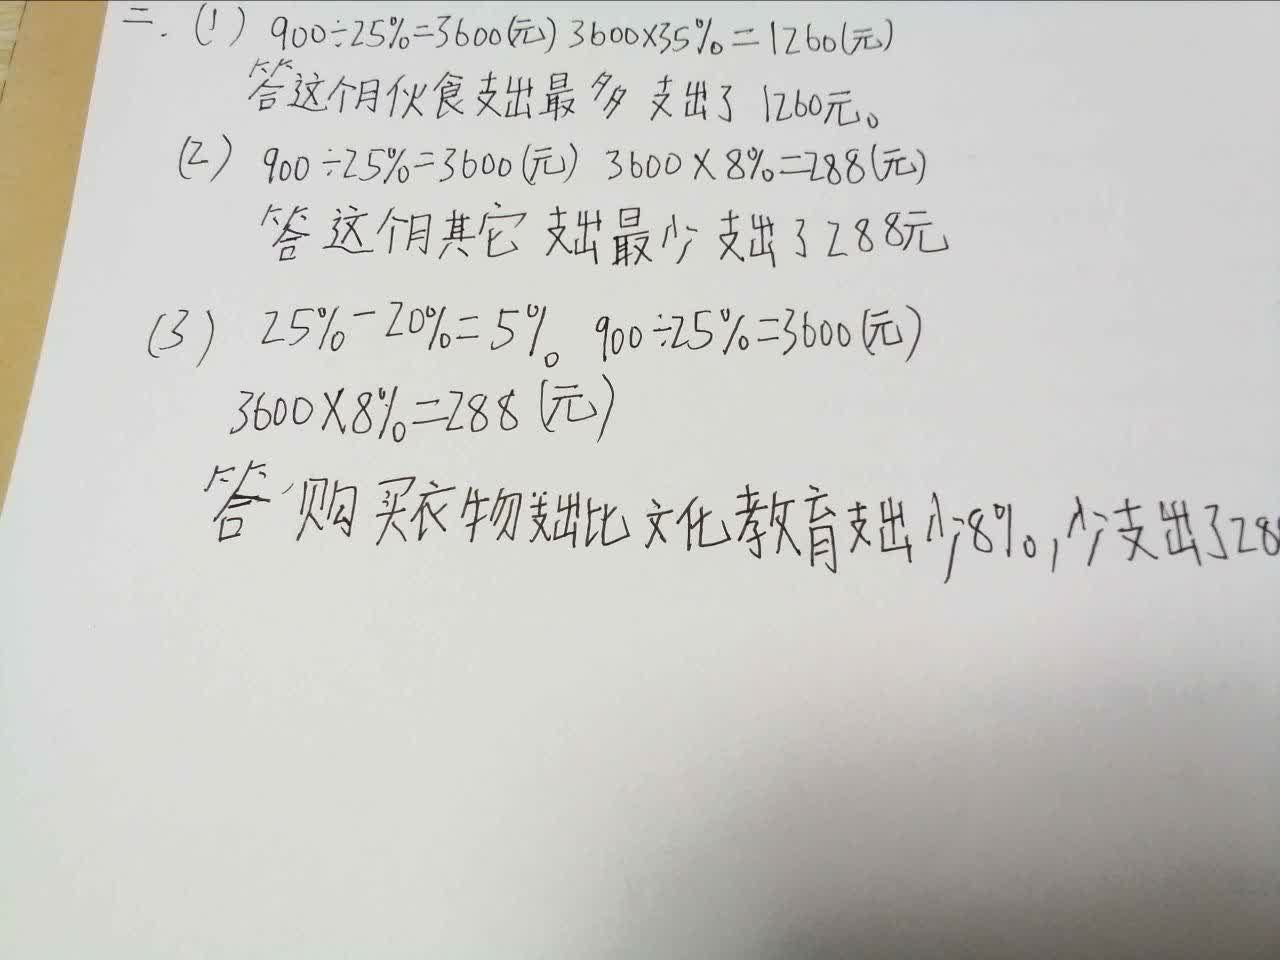 二.(1) 900÷25%=3600(元) 3600×35%=1260(元)
答这个月伙食支出最多 支出了 1260元。
(2) 900÷25%=3600(元) 3600×8%=288(元)
答这个月其它 支出最少 支出了288元
(3) 25%-20%=5% 900÷25%=3600(元)
3600×8%=288(元)
答购买衣物支出比文化教育支出少8%,少支出了28